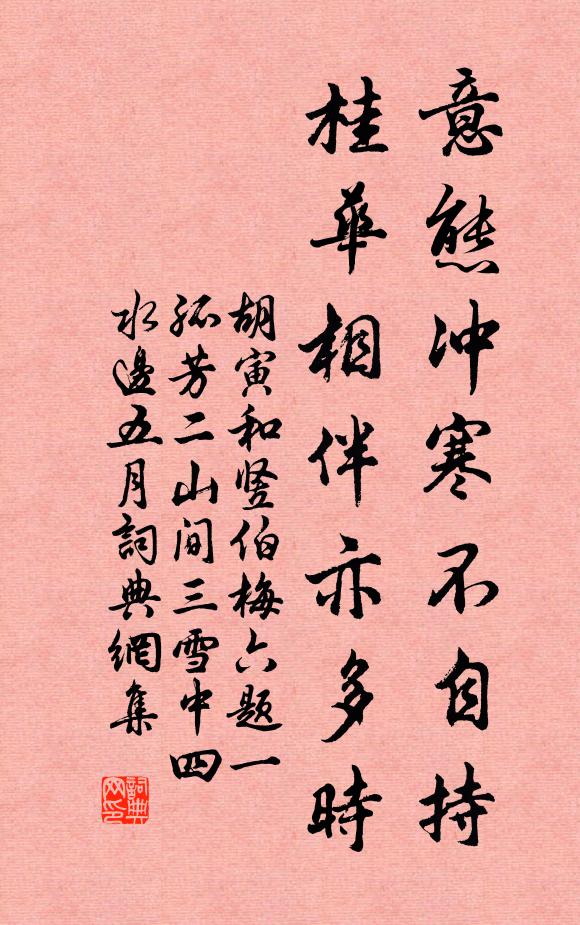 意態冲寒不自持
桂華相伴亦多時
胡寅和竖伯梅六题一
孤芳二山间三雪中四
水邊五月詞典網集
詞典網印